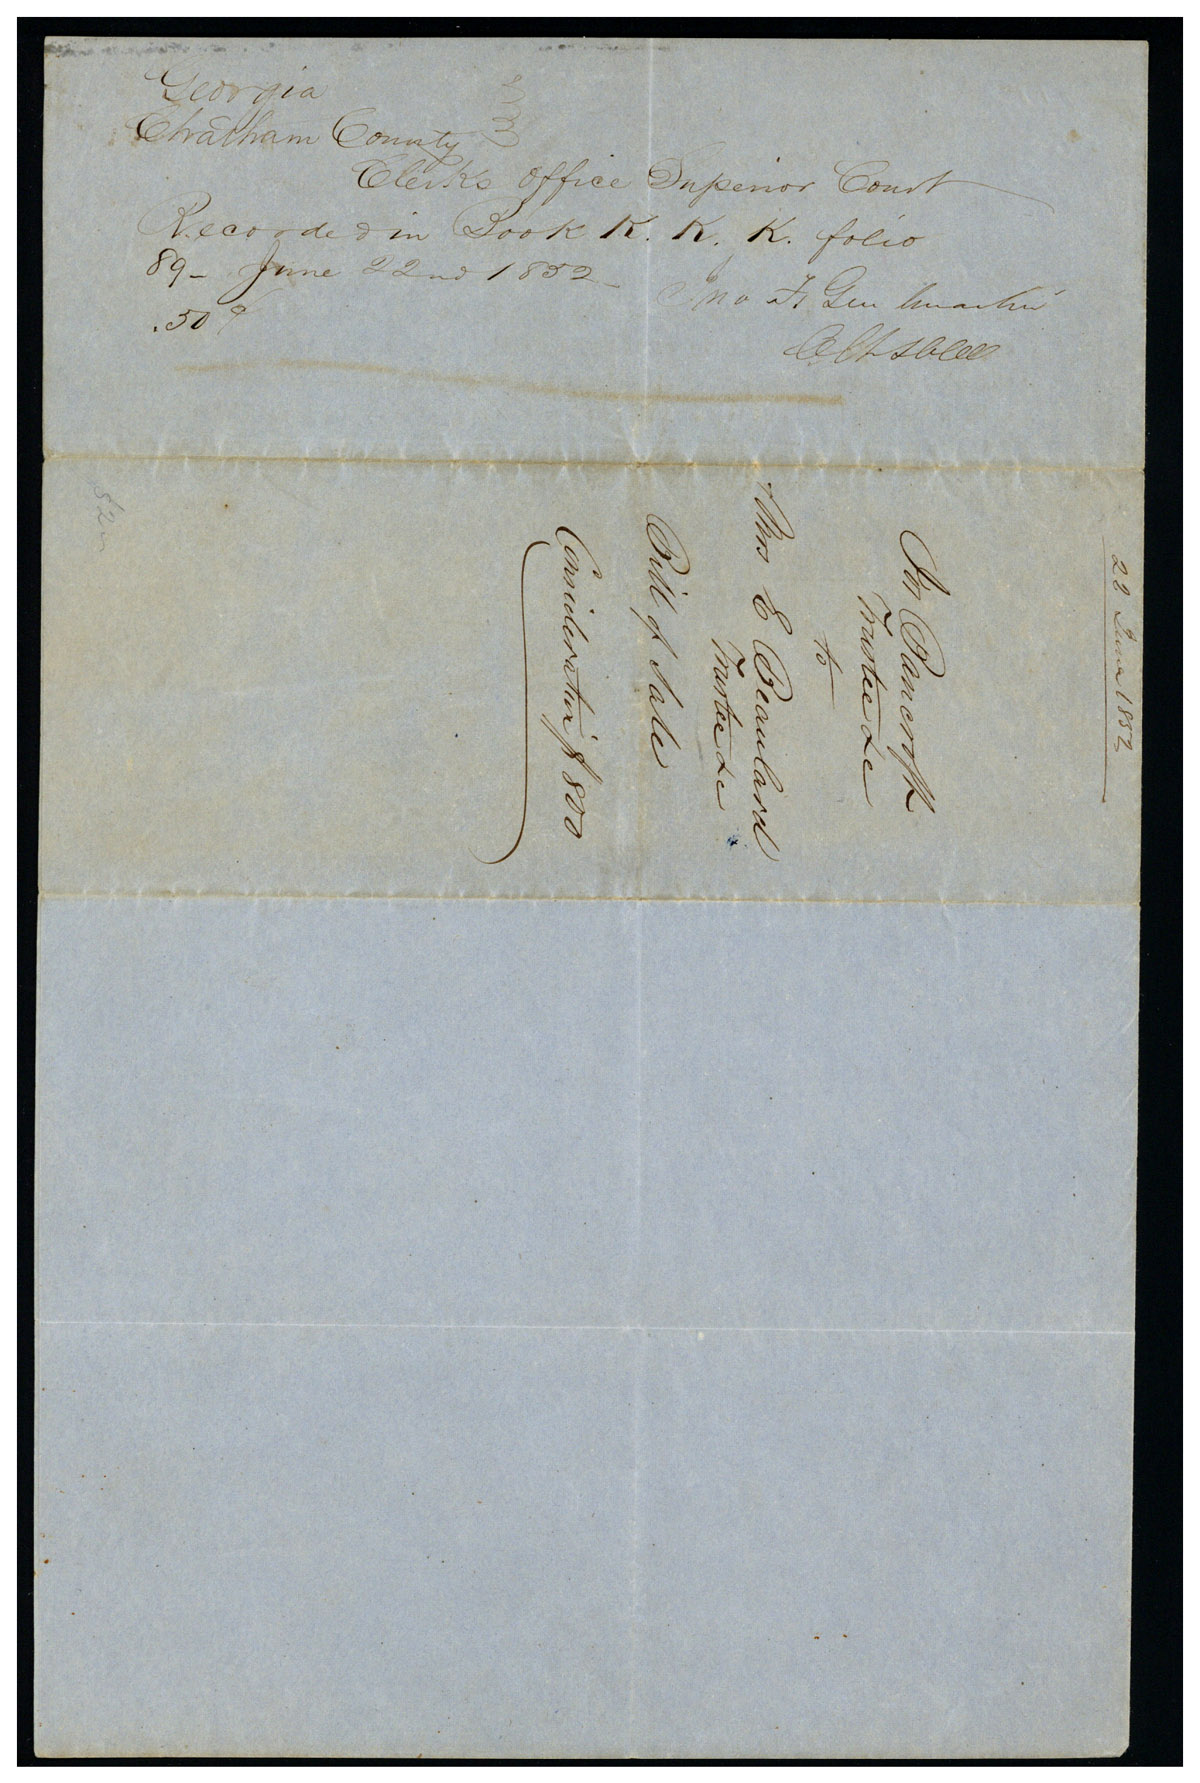 Georgia
Chatham County
Clerk's Office Superior Court
Recorded in Book K. K. K. folio
89 - June 22nd 1852 -
Jno F.
.50 ¢
22 June 1852
Bancroft
Trustee &c
to
Mrs E Beaulard
Trustee &c
Bill of Sale
Consideration $800